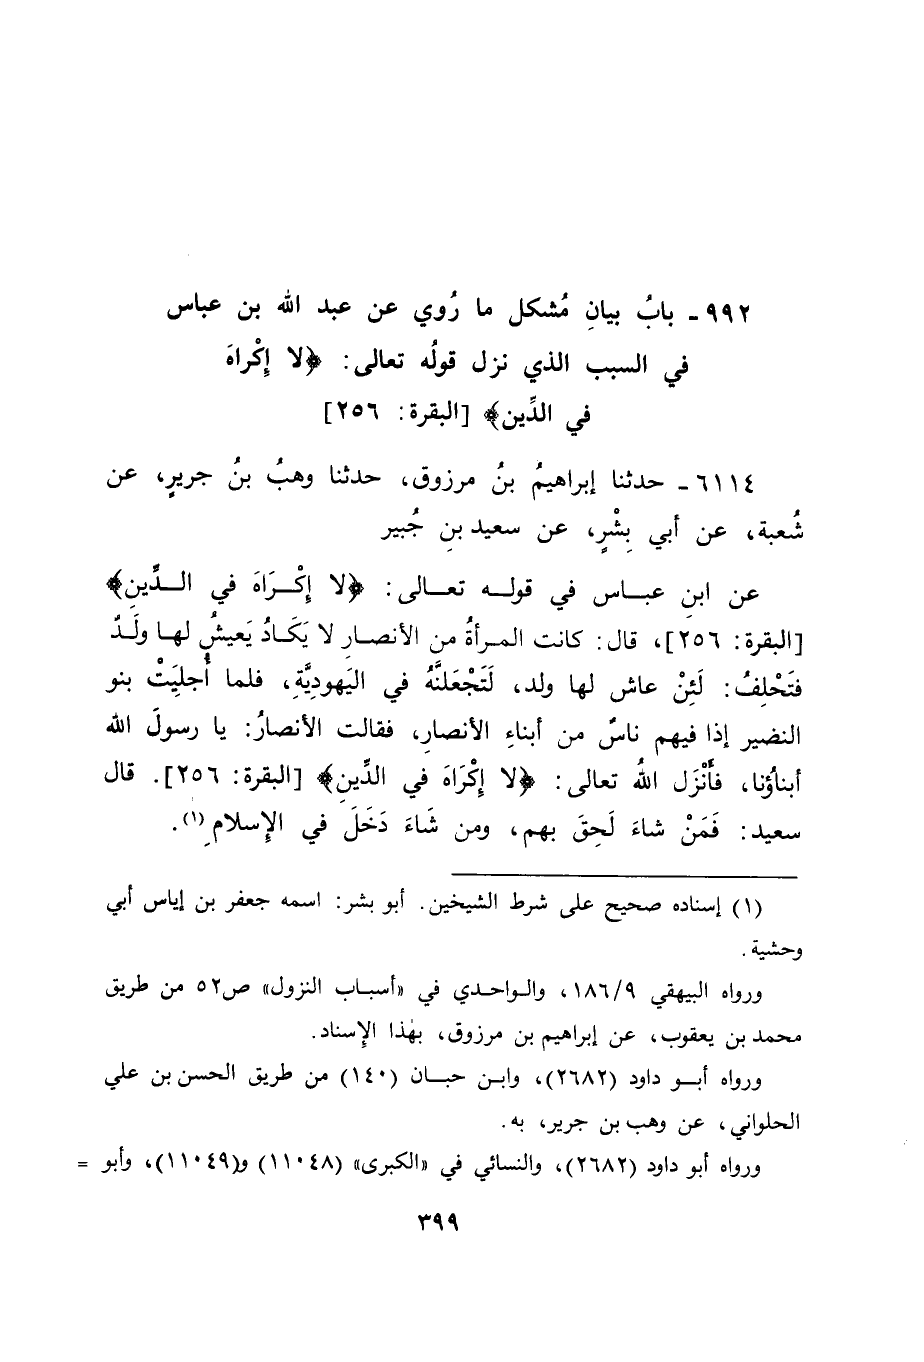 ٩٩٢ ـ بابُ بيانِ مُشكل ما رُوي عن عبد الله بن عباس
في السبب الذي نزل قولُه تعالى: ﴿لا إكْراهَ
في الدِّين﴾ [البقرة: ٢٥٦]
٦١١٤ ـ حدثنا إبراهيمُ بنُ مرزوق، حدثنا وهبُ بنُ جريرٍ، عن
شُعبة، عن أبي بِشْرٍ، عن سعيد بنِ جُبير
عن ابنِ عباس في قوله تعالى: ﴿لا إكْرَاهَ في الدِّينِ﴾
[البقرة: ٢٥٦]، قال: كانت المرأةُ من الأنصارِ لا يَكَادُ يَعيشُ لها ولَدٌ
فتَحْلِفُ: لَئِنْ عاش لها ولد، لَتَجْعَلنَّهُ في اليَهوديَّةِ، فلما أُجلِيَتْ بنو
النضير إذا فيهم ناسٌ من أبناءِ الأنصارِ، فقالت الأنصارُ: يا رسولَ الله
أبناؤنا، فأَنْزَل اللهُ تعالى: ﴿لا إكْرَاهَ في الدِّينِ﴾ [البقرة: ٢٥٦]. قال
سعيد: فَمَنْ شاءَ لَحِقَ بهم، ومن شَاءَ دَخَلَ في الإِسلامِ(١).
(١) إسناده صحيح على شرط الشيخين. أبو بشر: اسمه جعفر بن إياس أبي
وحشية.
ورواه البيهقي ١٨٦/٩، والواحدي في «أسباب النزول» ص٥٢ من طريق
محمد بن يعقوب، عن إبراهيم بن مرزوق، بهٰذا الإسناد.
ورواه أبو داود (٢٦٨٢)، وابن حبان (١٤٠) من طريق الحسن بن علي
الحلواني، عن وهب بن جرير، به.
ورواه أبو داود (٢٦٨٢)، والنسائي في «الكبرى» (١١٠٤٨) و(١١٠٤٩)، وأبو =
٣٩٩